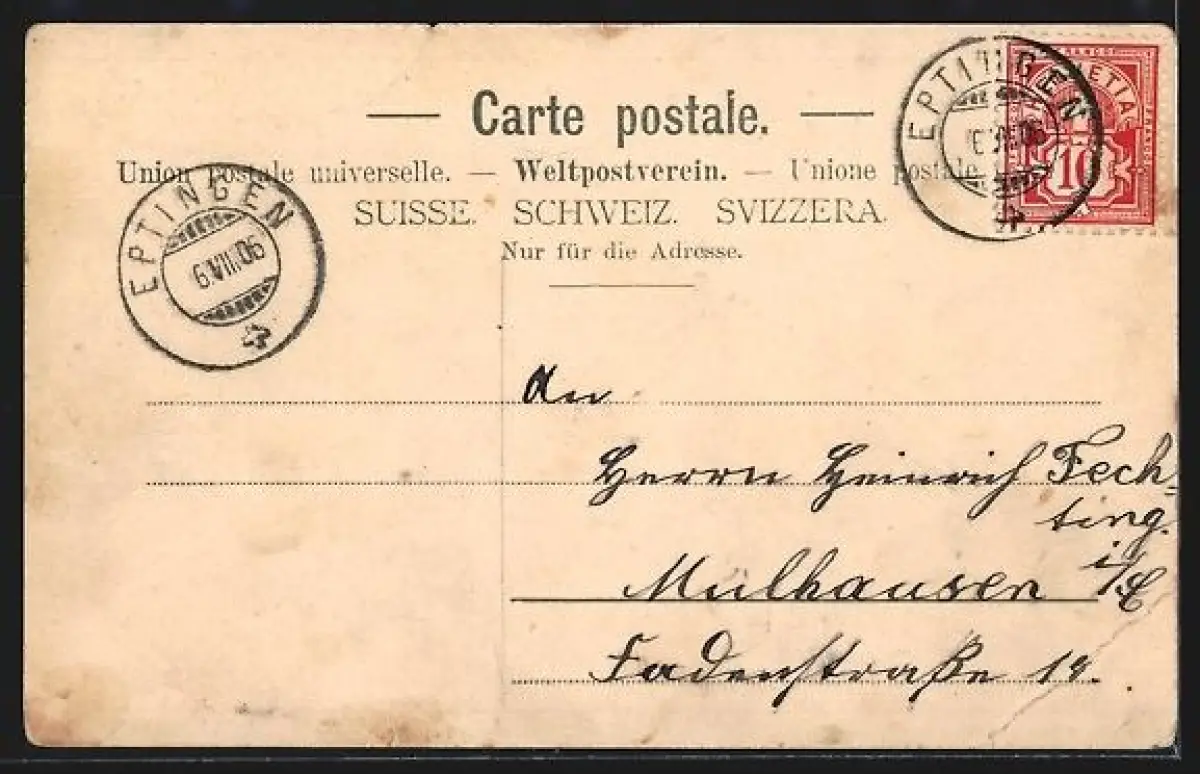 — Carte postale. —
Union postale universelle. — Weltpostverein. — Unione postale
SUISSE. SCHWEIZ. SVIZZERA.
Nur für die Adresse.
EPTINGEN
HELVETIA
FRANCO
10
EPTINGEN
6.VII.06
An
Herrn Heinrich Fech-
ting.
Mülhausen i/E
Fadenstraße 19.